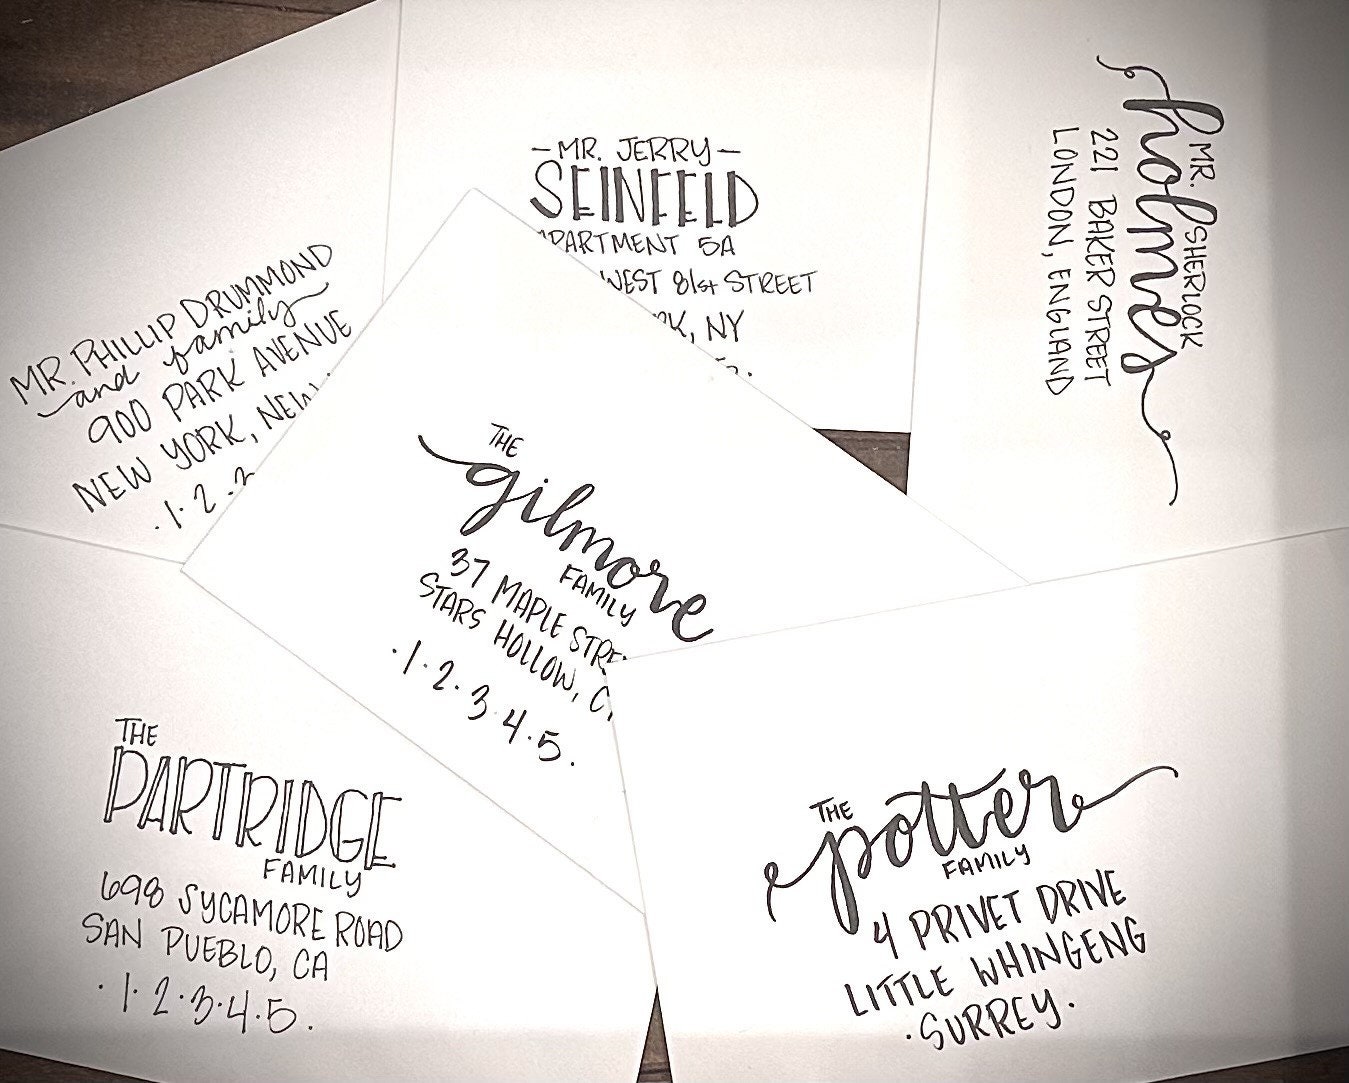 MR. PHILLIP DRUMMOND
and family
900 PARK AVENUE
NEW YORK, NEW
·1·2·
-MR. JERRY-
SEINFELD
APARTMENT 5A
WEST 81st STREET
NY
MR. SHERLOCK
holmes
221 BAKER STREET
LONDON, ENGLAND
THE
gilmore
FAMILY
37 MAPLE
STARS HOLLOW,
·1·2·3·4·5·
THE
PARTRIDGE
FAMILY
698 SYCAMORE ROAD
SAN PUEBLO, CA
·1·2·3·4·5·
THE
potter
FAMILY
4 PRIVET DRIVE
LITTLE WHINGENG
·SURREY·